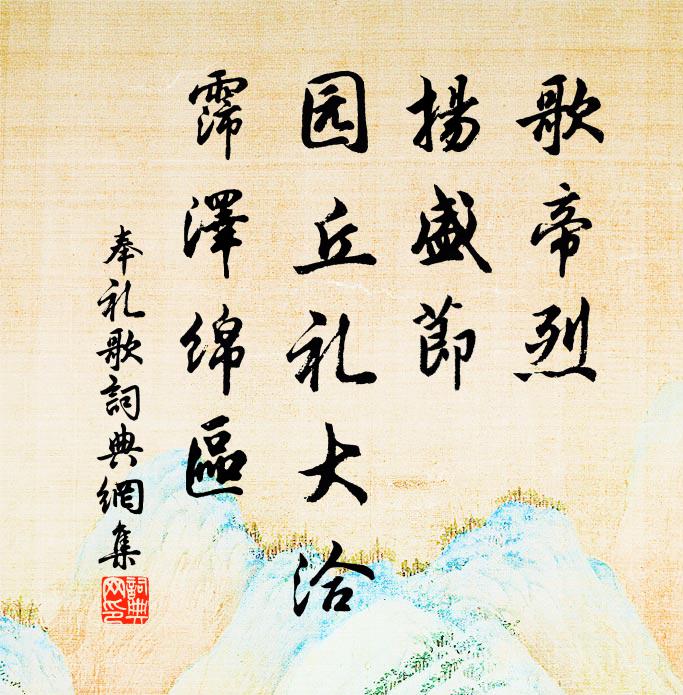 歌帝烈
揚盛節
园丘礼大洽
霈澤绵區
奉礼歌詞典網集
詞典网印